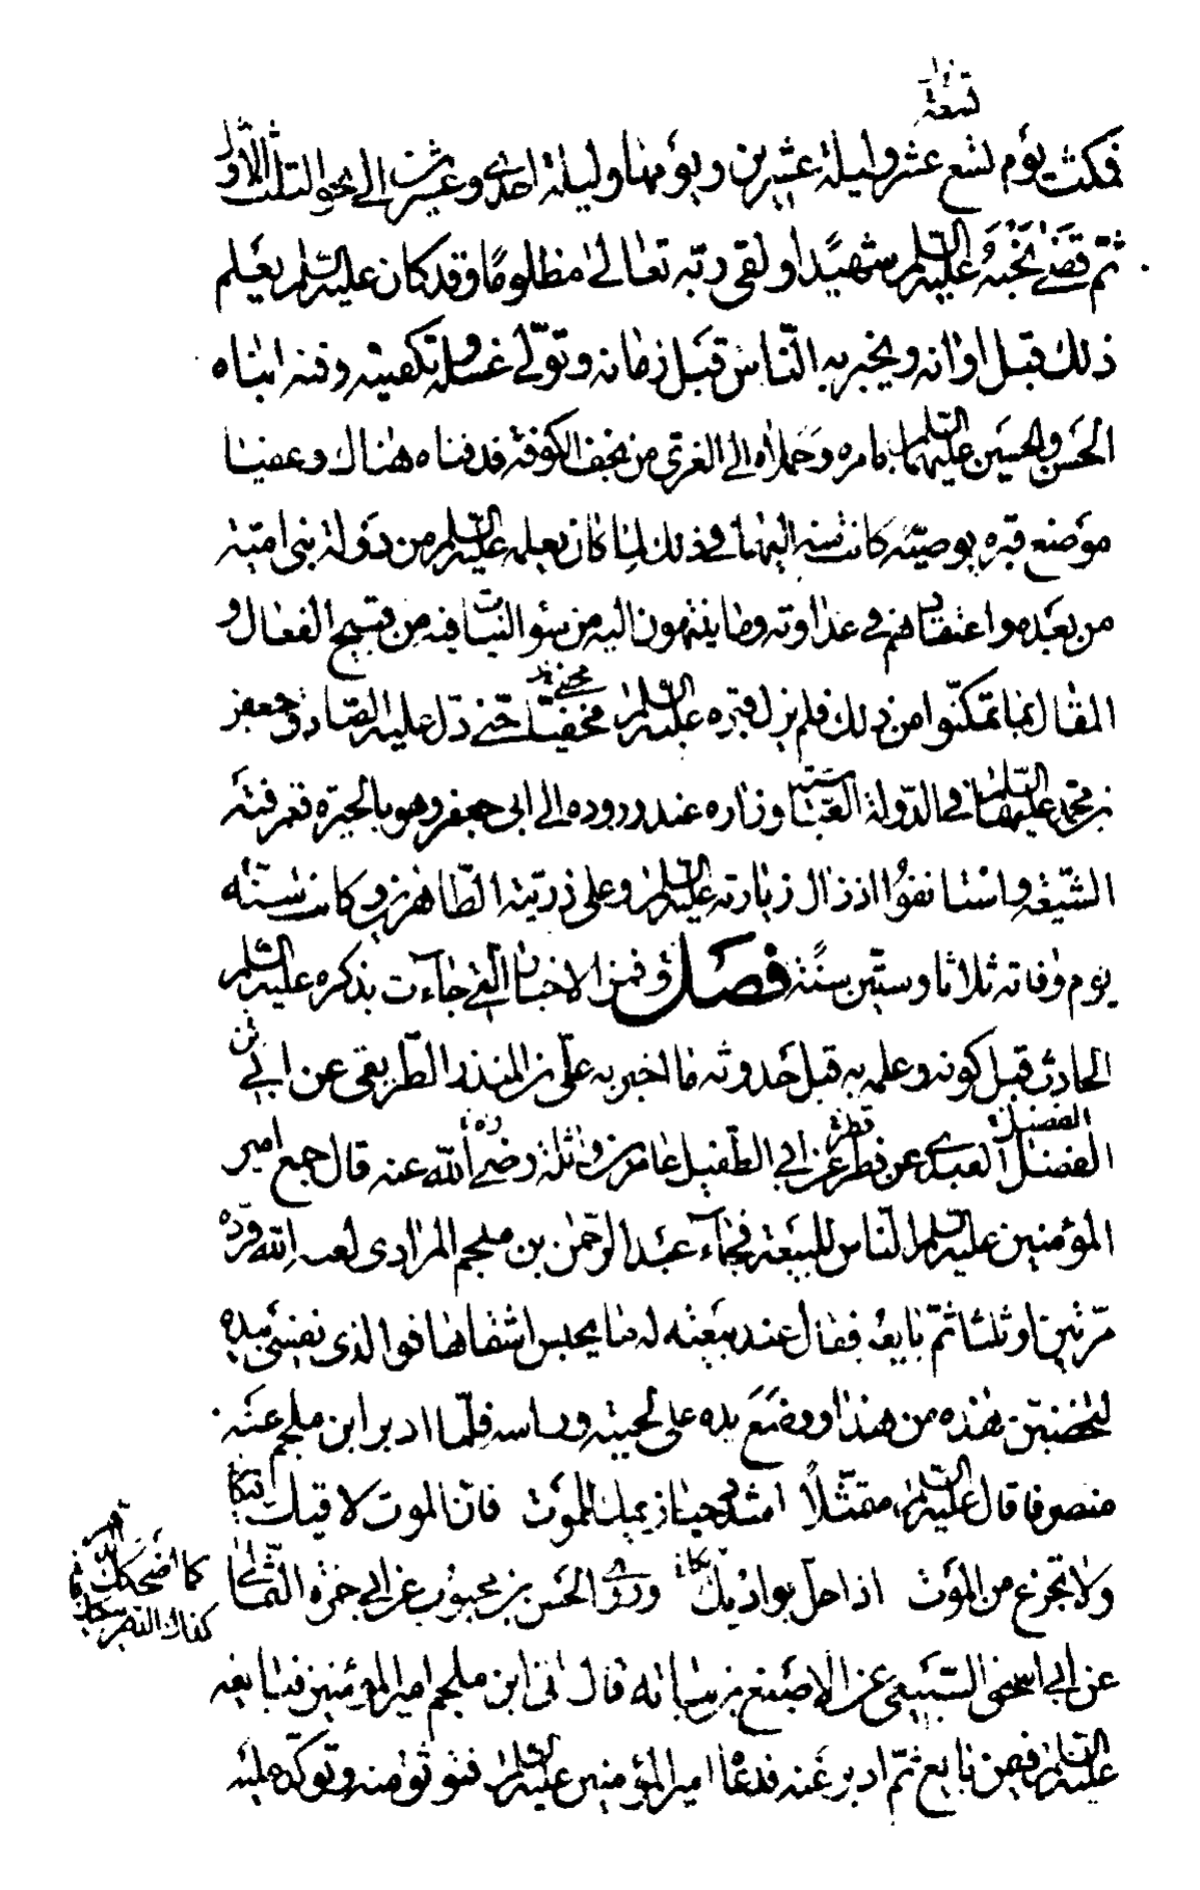 تسعة
فمكث يوم تسع عشر وليلة عشرين ويومها وليلة احدى وعشرين الى نحو الثلث الاول
ثمّ قضى نحبه عليه السّلم شهيدًا ولقى ربّه تعالى مظلومًا وقد كان عليه السّلم يعلم
ذلك قبل اوانه ويخبر به النّاس قبل زمانه وتولّى غسله وتكفينه ودفنه ابناه
الحسن والحسين عليهما السّلم بامره وحملاه الى الغرىّ من نجف الكوفة فدفناه هناك وعفيا
موضع قبره بوصيّته كانت منه اليهما فى ذلك لما كان يعلمه عليه السّلم من دولة بنى اميّة
من بعده واعتقادهم فى عداوته وما ينتهون اليه من سؤ النيّات فيه من قبيح الفعال و
المقال بما تمكّنوا من ذلك فلم يزل قبره عليه السّلم مخفيّا حتّى دلّ عليه الصّادق جعفر
بن محمّد عليهما السّلم فى الدّولة العبّاسيّة وزاره عند وروده الى ابى جعفر وهو بالحيرة فعرفته
الشّيعة واستانفوا اذ ذاك زيارته عليه السّلم وعلى ذريّته الطّاهرين وكانت سنّه
يوم وفاته ثلاثا وستّين سنة فصل فمن الاخبار الّتى جاءت بذكره عليه السّلم
الحادث قبل كونه وعلمه به قبل حدوثه ما اخبر به علىّ بن المنذر الطّريقى عن ابى
الفضل العبدى عن فطر عن ابى الطّفيل عامر بن واثلة رضى الله عنه قال جمع امير
المؤمنين عليه السّلم النّاس للبيعة فجاء عبد الرّحمن بن ملجم المرادى لعنه الله فردّه
مرّتين او ثلثا ثمّ بايعه فقال عند بيعته له ما يحبس اشقاها فوالذى نفسى بيده
لتخضبنّ هذه من هذا ووضع يده على لحيته وراسه فلمّا ادبر ابن ملجم عنه
منصرفا قال عليه السّلم متمثّلاً اشدد حيازيمك للموت فانّ الموت لاقيك
ولا تجزع من الموت اذا حلّ بواديك وروى الحسن بن محبوب عن ابى حمزة الثّمالى
كما اضحكك الدّهر
عن ابى اسحق السّبيعى عن الاصبغ بن نباته قال اتى ابن ملجم امير المؤمنين فبايعه
عليه السّلم فيمن بايع ثمّ ادبر عنه فدعا امير المؤمنين عليه السّلم فتوثّق منه وتوكّد عليه